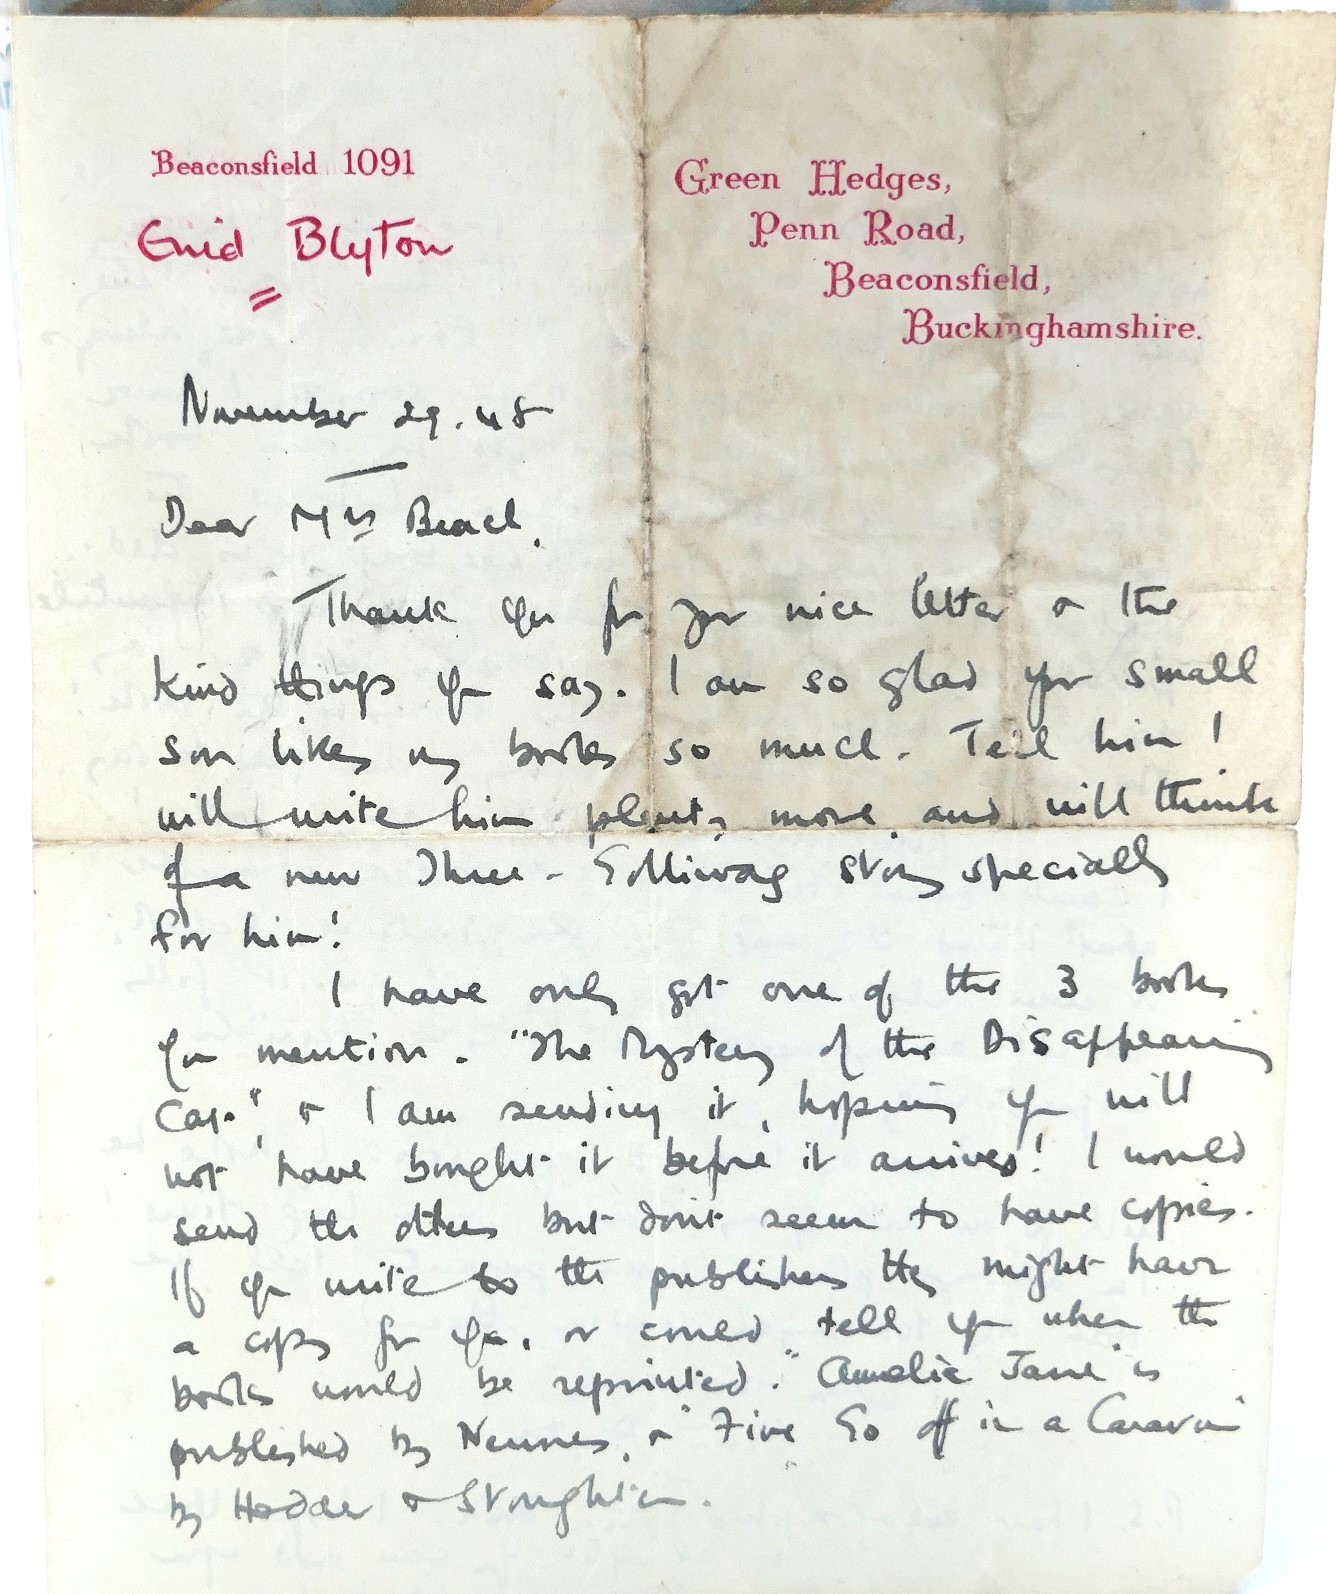 Beaconsfield 1091
Enid Blyton
Green Hedges,
Penn Road,
Beaconsfield,
Buckinghamshire.
November 29. 48
Dear Mrs Beach,
Thank you for your nice letter & the
kind things you say. I am so glad your small
son likes my books so much. Tell him I
will write him plenty more, and will think
of a new Three-Golliwog story specially
for him!
I have only got one of the 3 books
you mention. "The Mystery of the Disappearing
Cat", & I am sending it, hoping you will
not have bought it before it arrives! I would
send the others but don't seem to have copies.
If you write to the publishers they might have
a copy for you, or could tell you when the
books would be reprinted. "Amelia Jane" is
published by Newnes, & "Five Go off in a Caravan"
by Hodder & Stoughton.